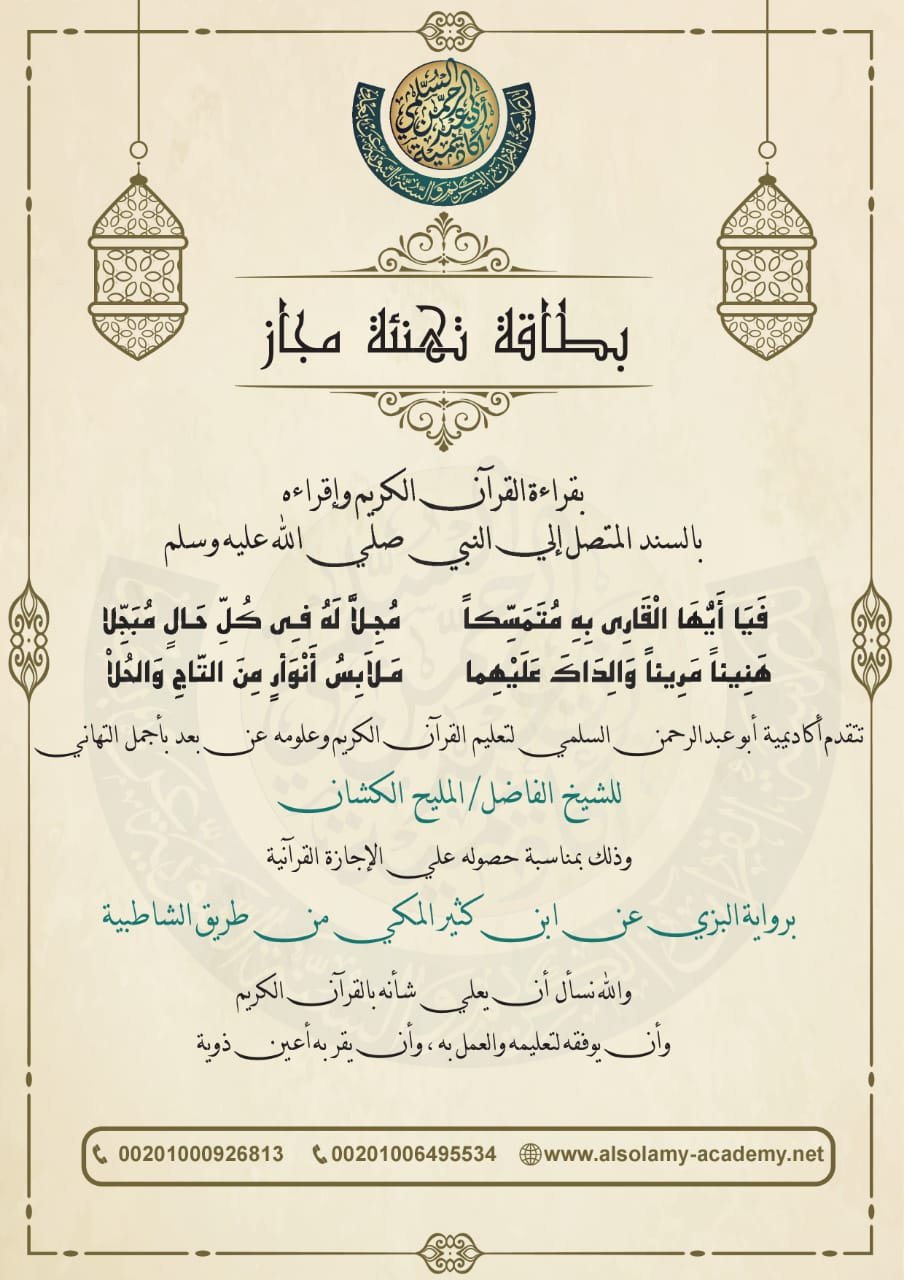 أكاديمية أبي عبد الرحمن السلمي
بطاقة تهنئة مجاز
بقراءة القرآن الكريم وإقراءه
بالسند المتصل إلي النبي صلي الله عليه وسلم
فَيَا أَيُّهَا الْقَارِى بِهِ مُتَمَسِّكاً مُجِلاًّ لَهُ فِى كُلِّ حَالٍ مُبَجِّلا
هَنِيئاً مَرِيئاً وَالِدَاكَ عَلَيْهِما مَلاَبِسُ أَنْوَأرٍ مِنَ التّاجِ وَالحُلاْ
تتقدم أكاديمية أبو عبدالرحمن السلمي لتعليم القرآن الكريم وعلومه عن بعد بأجمل التهاني
للشيخ الفاضل/ المليح الكشان
وذلك بمناسبة حصوله علي الإجازة القرآنية
برواية البزي عن ابن كثير المكي من طريق الشاطبية
والله نسأل أن يعلي شأنه بالقرآن الكريم
وأن يوفقه لتعليمه والعمل به ، وأن يقر به أعين ذوية
00201000926813 00201006495534 www.alsolamy-academy.net